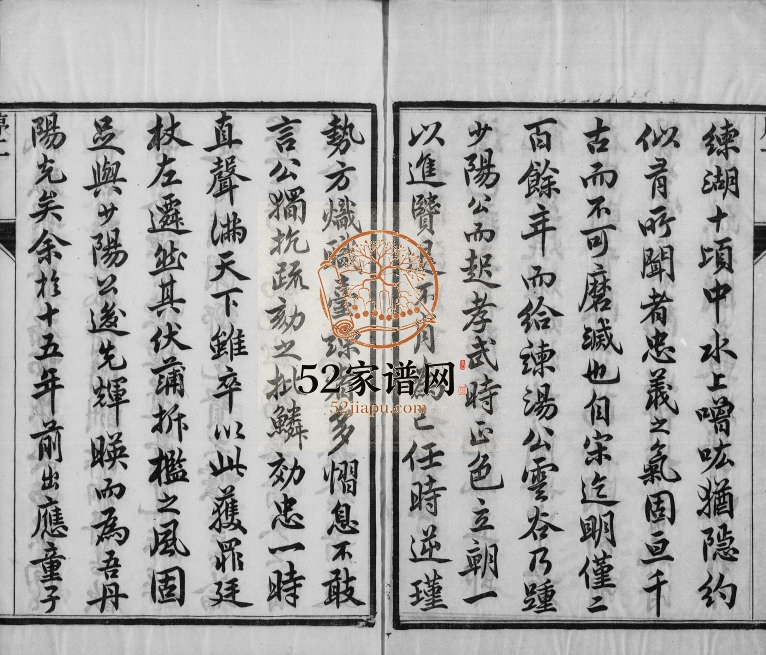 練湖十頃中水上噌吰猶隱約
似有所聞者忠義之氣固亘千
古而不可磨滅也自宋迄明僅二
百餘年而給諫湯公雲谷乃踵
少陽公而起孝武時正色立朝一
以進賢退不肖為己任時逆瑾
勢方熾職臺諫者多慴息不敢
言公獨抗疏劾之批鱗効忠一時
直聲滿天下雖卒以此獲罪廷
杖左遷然其伏蒲折檻之風固
足與少陽公後先輝暎而為吾丹
陽光矣余於十五年前出應童子
52家谱网
52jiapu.com